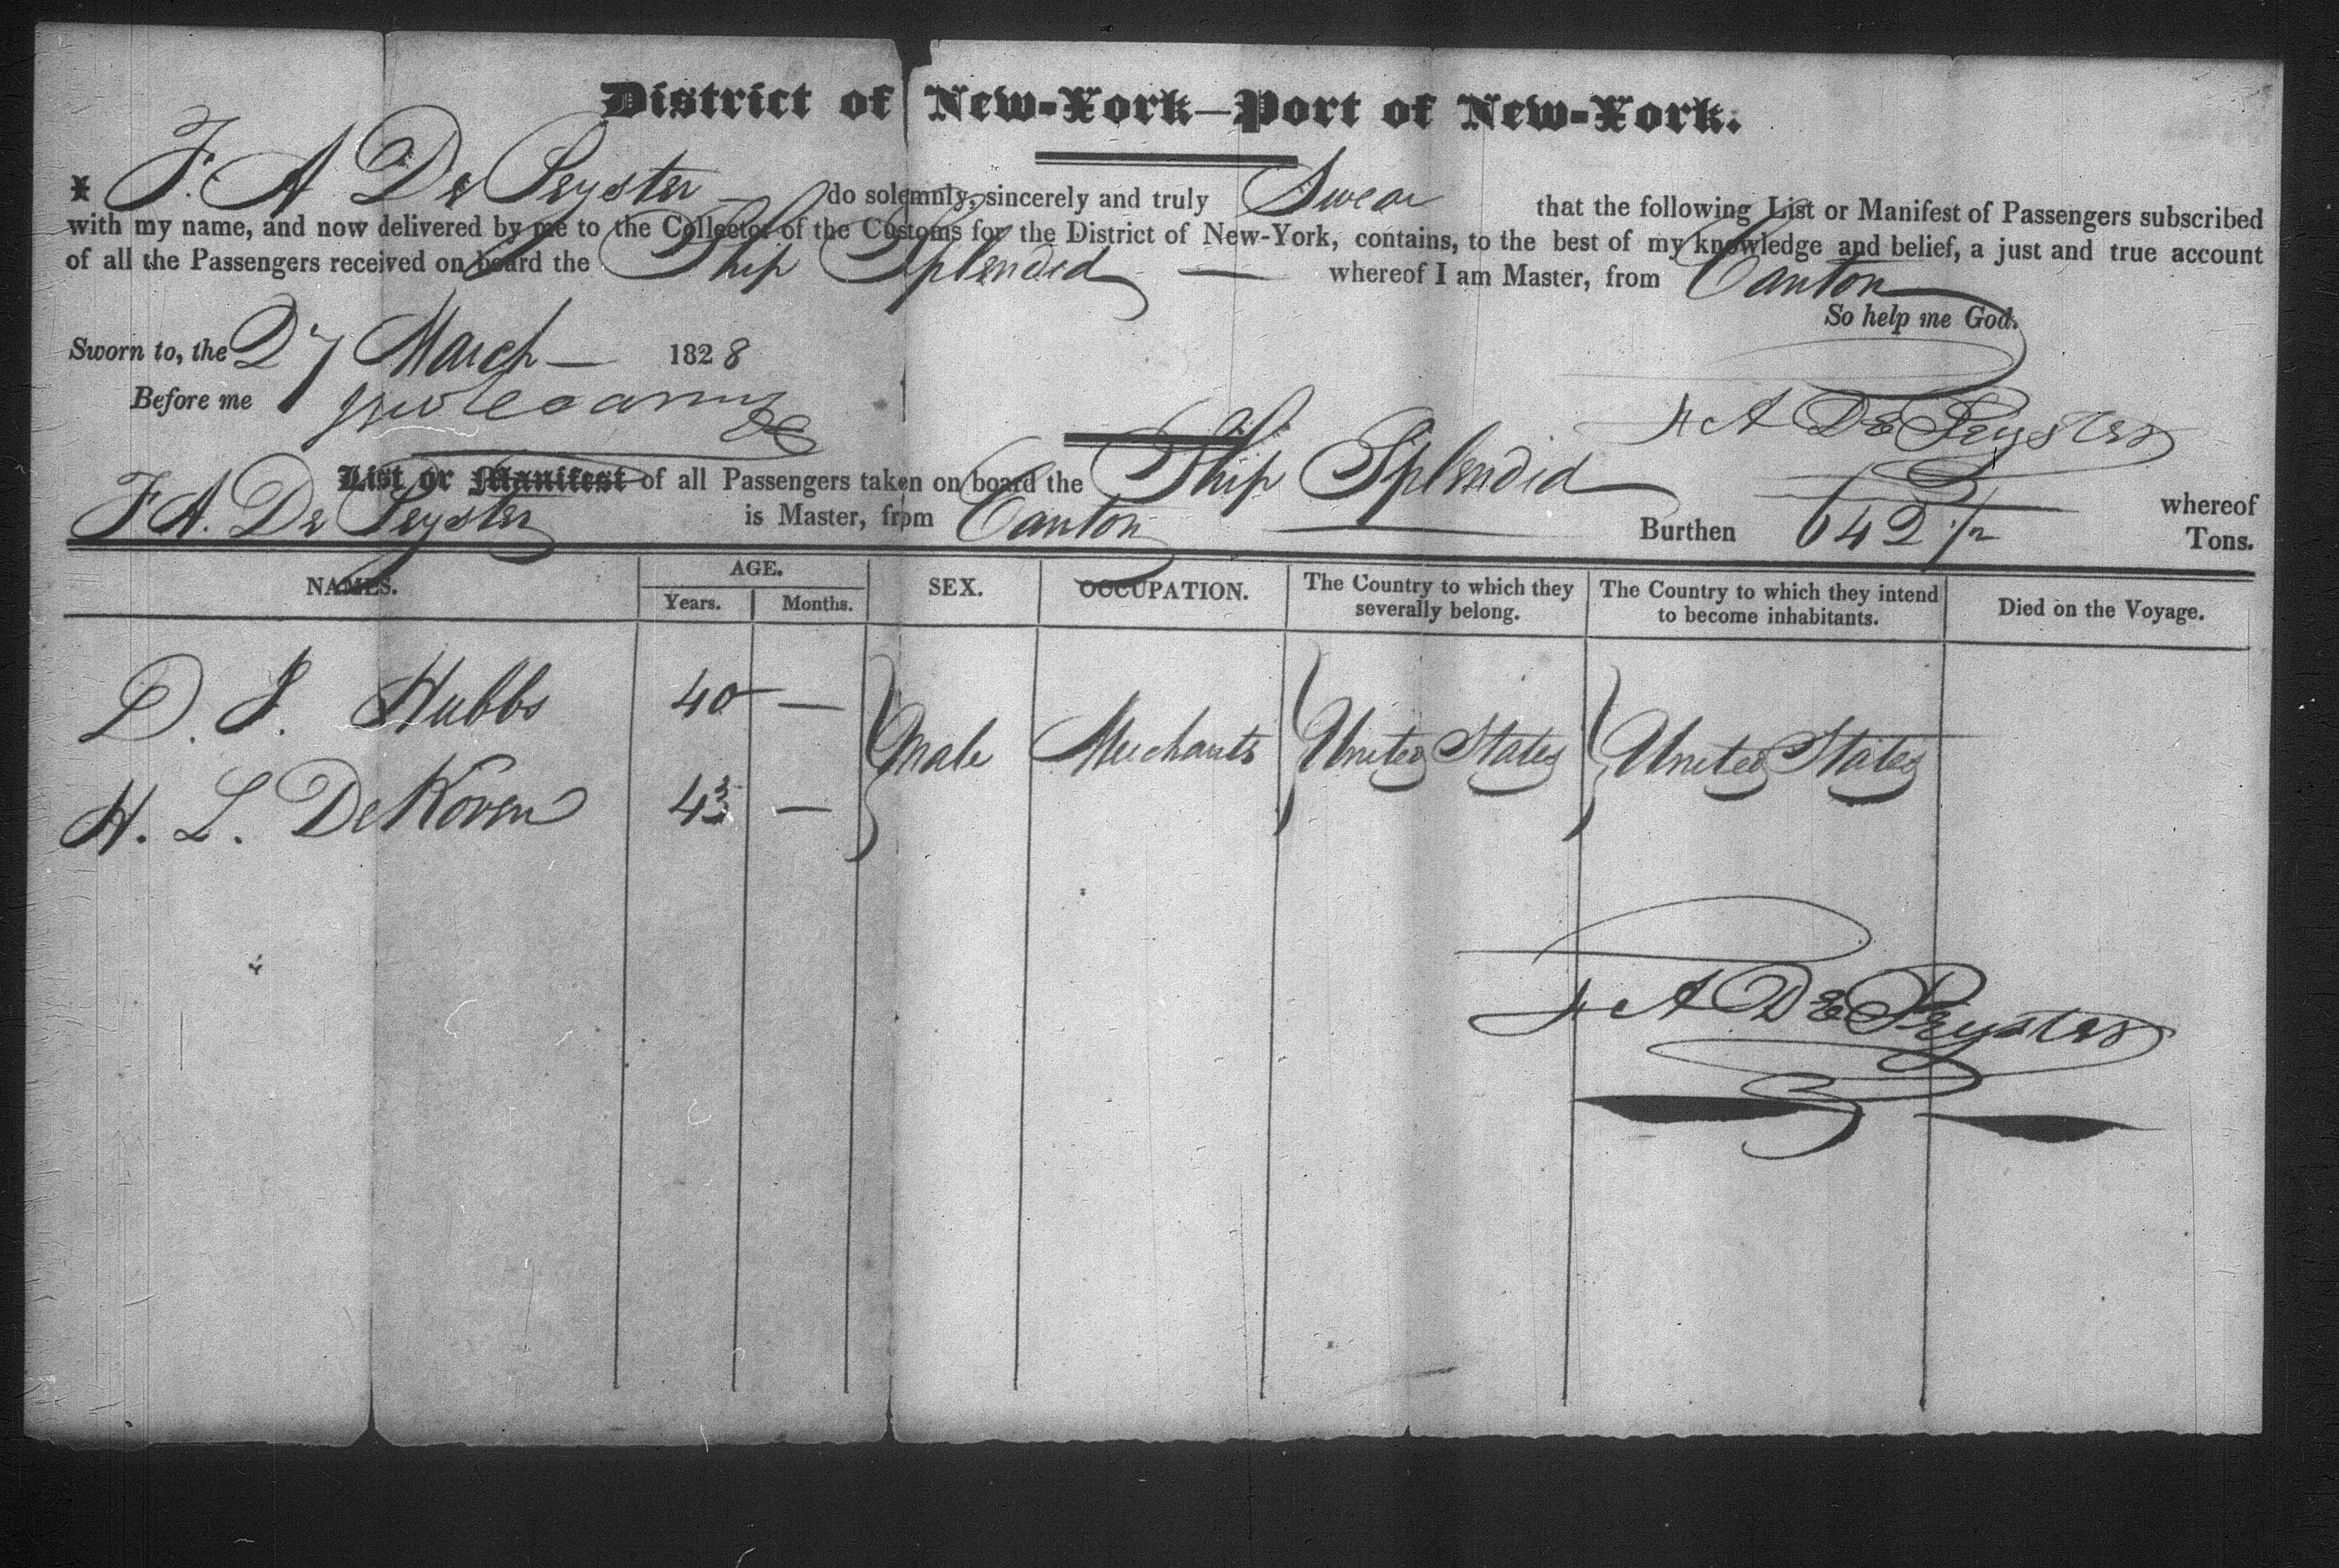 District of New-York—Port of New-York.
I F. A De Peyster do solemnly, sincerely and truly Swear that the following List or Manifest of Passengers subscribed
with my name, and now delivered by me to the Collector of the Customs for the District of New-York, contains, to the best of my knowledge and belief, a just and true account
of all the Passengers received on board the Ship Splendid — whereof I am Master, from Canton
So help me God.
Sworn to, the 27 March — 1828
Before me
F A De Peyster
List or Manifest of all Passengers taken on board the Ship Splendid whereof
F A. De Peyster is Master, from Canton Burthen 642 1/2 Tons.
NAMES. AGE. SEX. OCCUPATION. The Country to which they severally belong. The Country to which they intend to become inhabitants. Died on the Voyage.
Years. Months.
D. J. Hubbs 40 —
Male Merchants United States United States
H. L. DeKoven 43 —
F A De Peyster